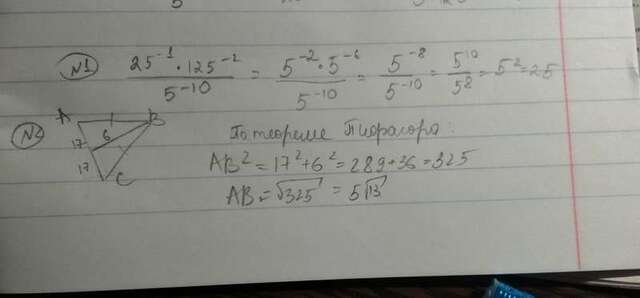 N1 25^-1 · 125^-2 / 5^-10 = 5^-2 · 5^-6 / 5^-10 = 5^-8 / 5^-10 = 5^10 / 5^8 = 5^2 = 25
N2 A B 17 6 17 C
По теореме Пифагора:
AB^2 = 17^2 + 6^2 = 289 + 36 = 325
AB = √325 = 5√13